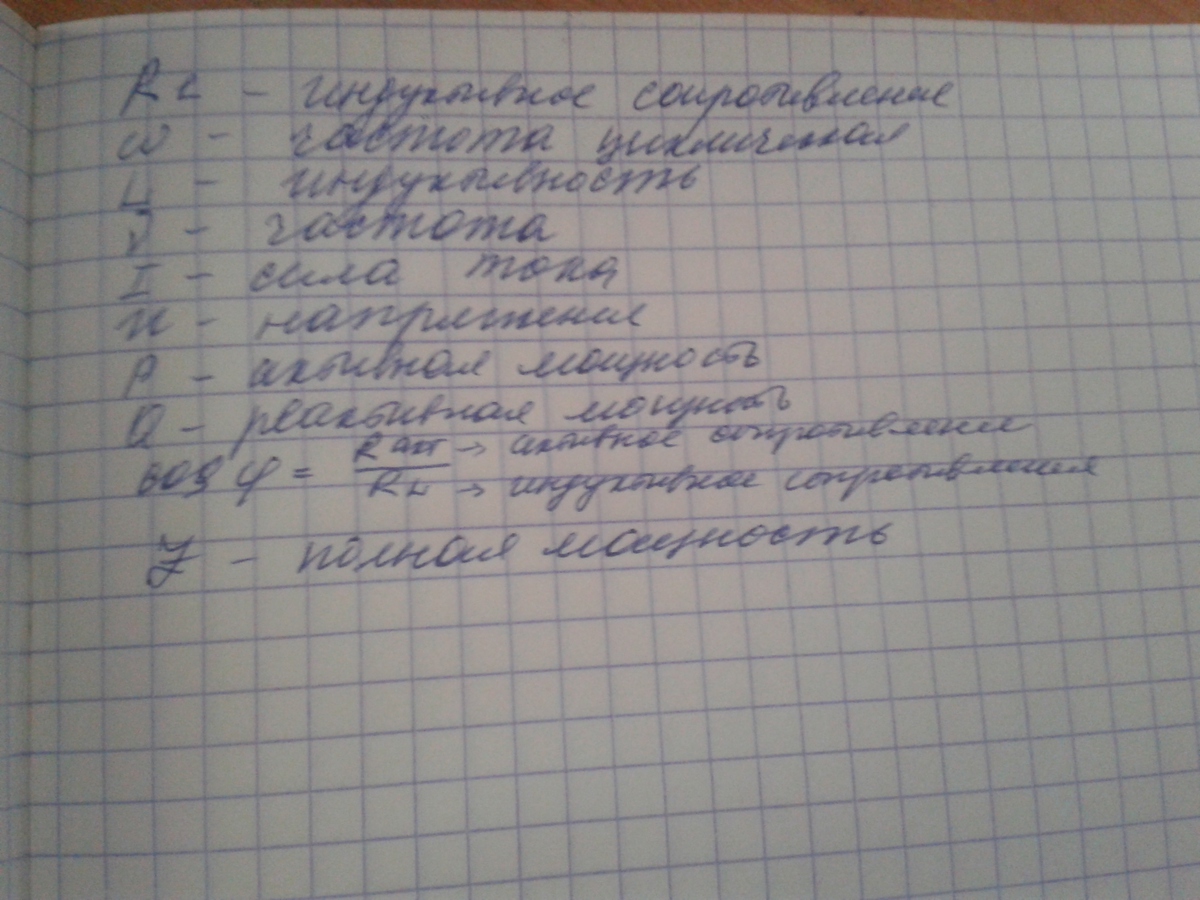 RL - индуктивное сопротивление
ω - частота циклическая
L - индуктивность
ν - частота
I - сила тока
u - напряжение
P - активная мощность
Q - реактивная мощность
cos φ = Rакт / RL → активное сопротивление → индуктивное сопротивления
Z - полная мощность